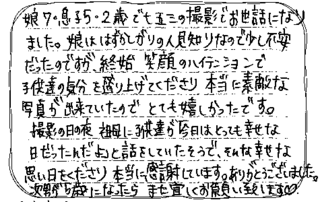 娘7・息子5・2歳で七五三の撮影でお世話になり
ました。娘ははずかしがりの人見知りなので少し不安
だったのですが、終始 笑顔のハイテンションで
子供達の気分を盛り上げてくださり 本当に素敵な
写真が出来ていたので とても嬉しかったです。
撮影の日の夜 祖母に子供達が今日はとっても幸せな
日だったんだよっと話をしていたそうで、そんな幸せな
思い出をくださり 本当に感謝しています。ありがとうございました。
次男が5歳になったら ませ宜しくお願い致します♡